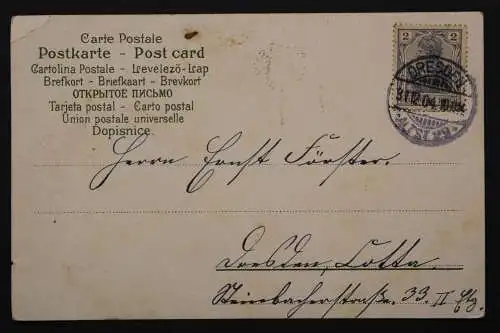 Carte Postale
Postkarte - Post card
Cartolina Postale - Levelező-Lap
Brefkort - Briefkaart - Brevkort
ОТКРЫТОЕ ПИСЬМО
Tarjeta postal - Carto postal
Union postale universelle
Dopisnice.
2 2
DRESDEN
31.12.04
Herrn Ernst Förster.
Dresden, Cotta.
Steinbacherstraße. 33. II Etg.